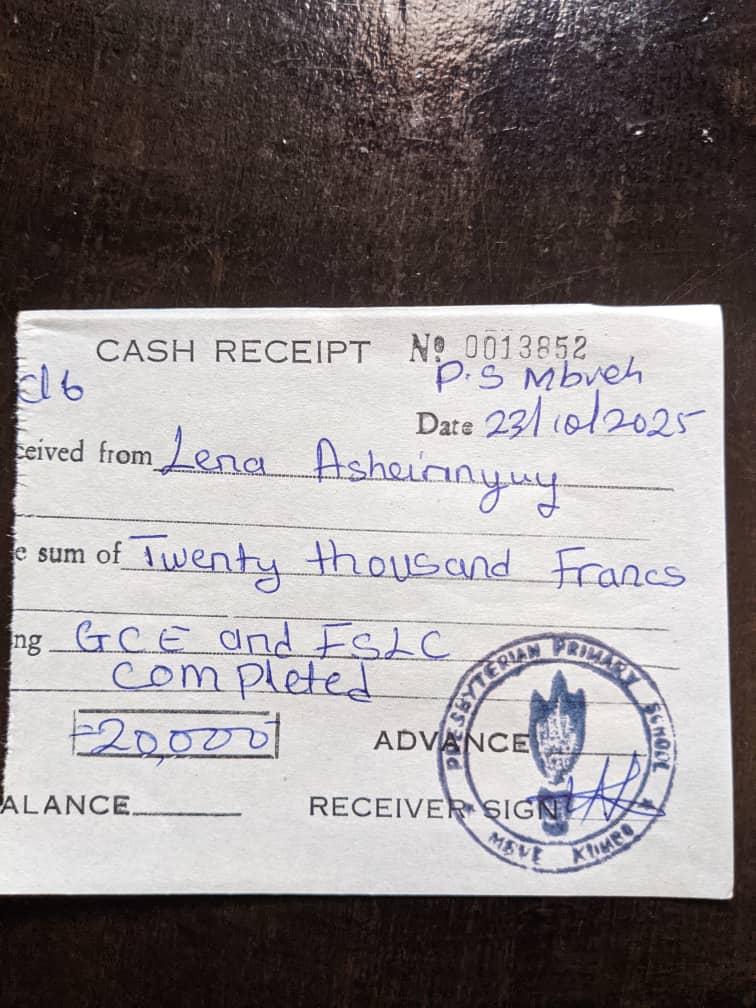 CASH RECEIPT Nº 0013852
cl 6 P.S Mbveh
Date 23/10/2025
ceived from Lena Asheirinyuy
e sum of Twenty thousand Francs
ng GCE and FSLC
completed
=20,000
ADVANCE
ALANCE
RECEIVER SIGN
PRESBYTERIAN PRIMARY SCHOOL
MBVE KUMBO